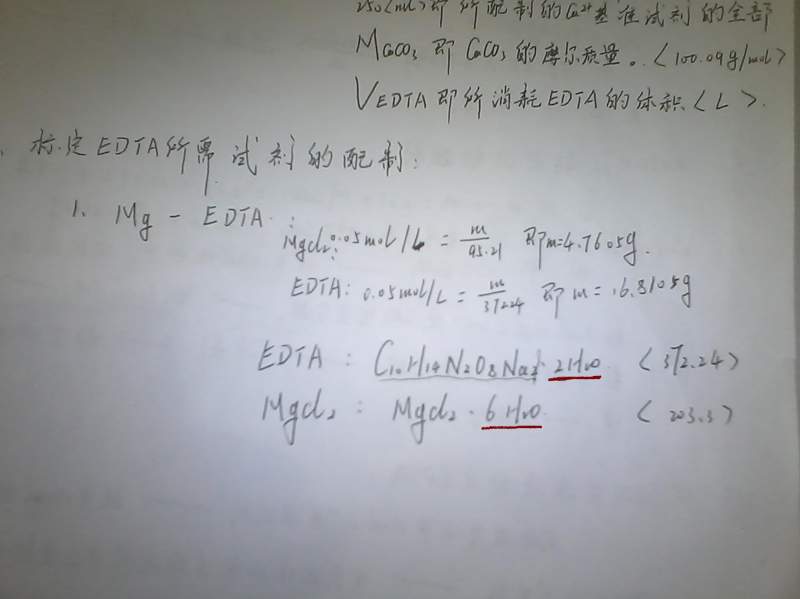 250(mL)即所配制的Ca²⁺基准试剂的全部
MCaCO₃ 即 CaCO₃ 的摩尔质量。〈100.09g/mol〉
VEDTA 即所消耗EDTA的体积〈L〉.
标定EDTA所需试剂的配制:
1. Mg - EDTA:
MgCl₂: 0.05mol/L = m/95.21 即m=4.7605g.
EDTA: 0.05mol/L = m/372.24 即 m = 16.8105g
EDTA : C₁₀H₁₄N₂O₈Na₂·2H₂O 〈372.24〉
MgCl₂ : MgCl₂·6H₂O 〈203.3〉